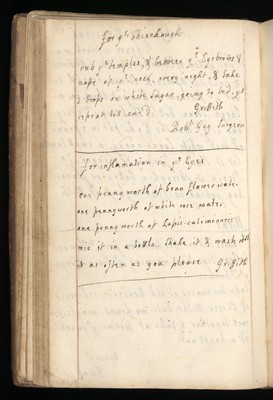 for yᵉ
rub yᵉ temples, & between yᵉ Eyebrows &
nape of yᵉ neck, every night, & take
3 drops on white sugar, going to bed, &
repeat till cur'd. Griffith
Robᵗ Gay Surgeon
for inflamation in yᵉ Eyes
one penny worth of bean flower water,
one pennyworth of white rose water,
one penny worth of Lapis-caliminaris
mix it in a bottle, shake it & wash with
it as often as you please Griffith